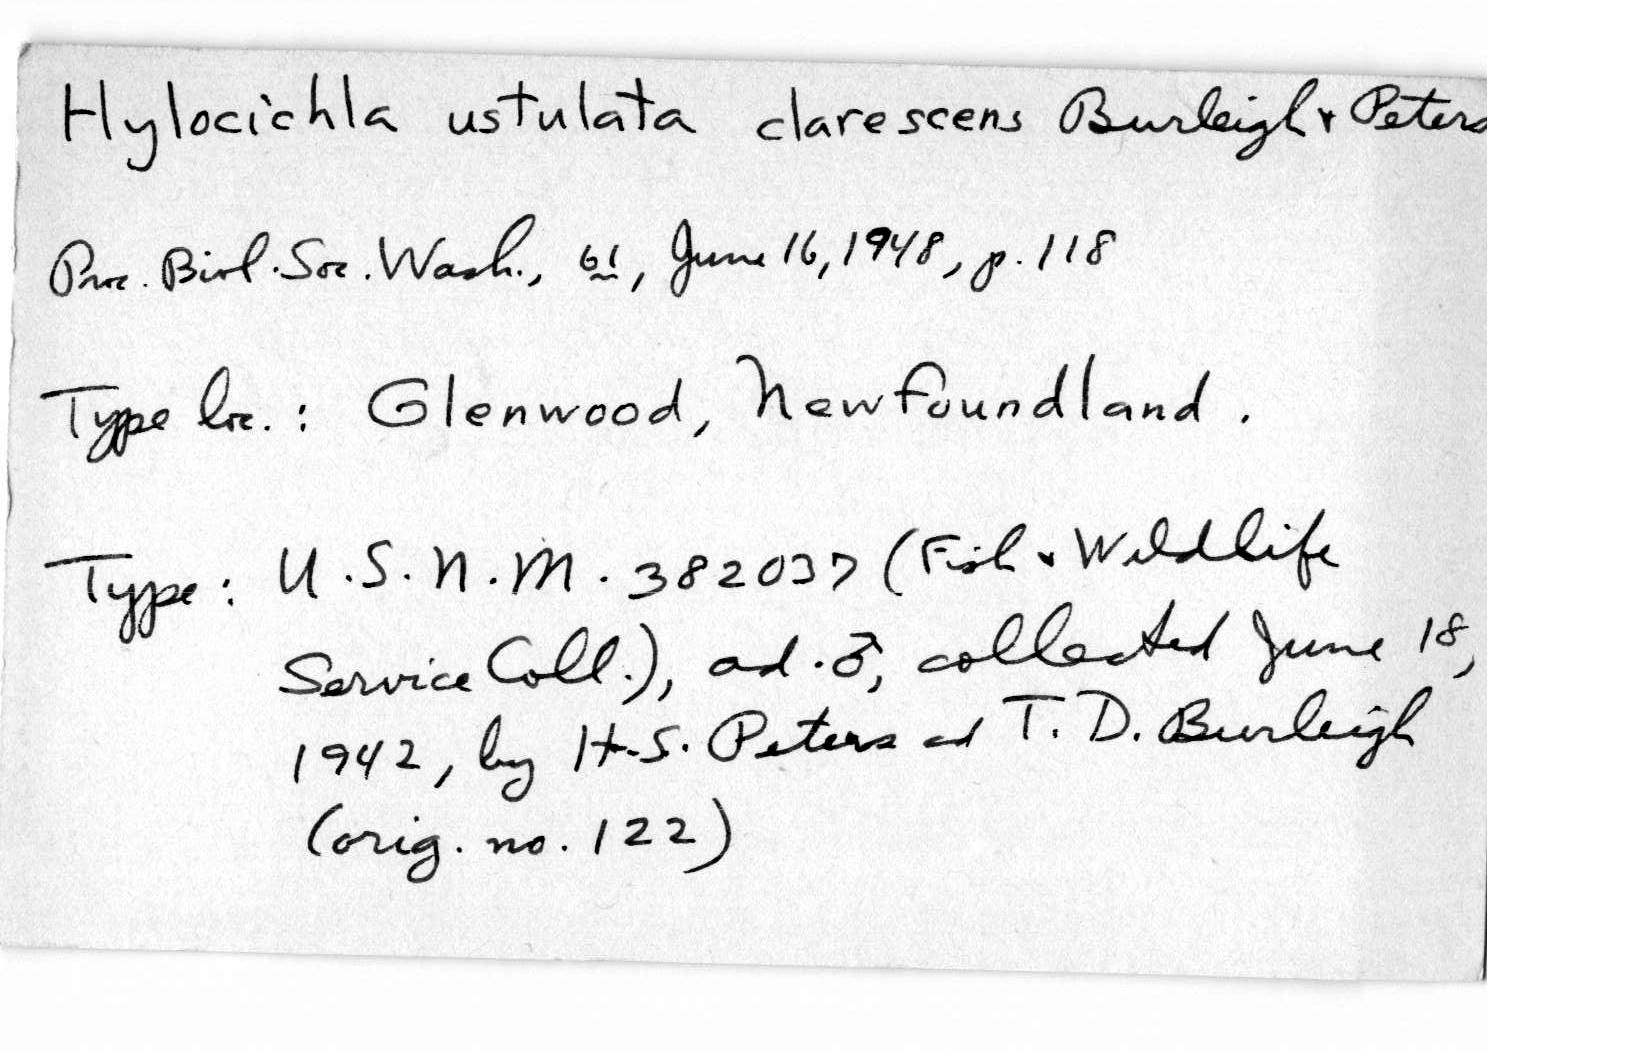 Hylocichla ustulata clarescens Burleigh & Peters
Proc. Biol. Soc. Wash., 61, June 16, 1948, p. 118
Type loc.: Glenwood, Newfoundland.
Type: U.S.N.M. 382037 (Fish & Wildlife
Service Coll.), ad. ♂, collected June 18,
1942, by H.S. Peters and T. D. Burleigh
(orig. no. 122)